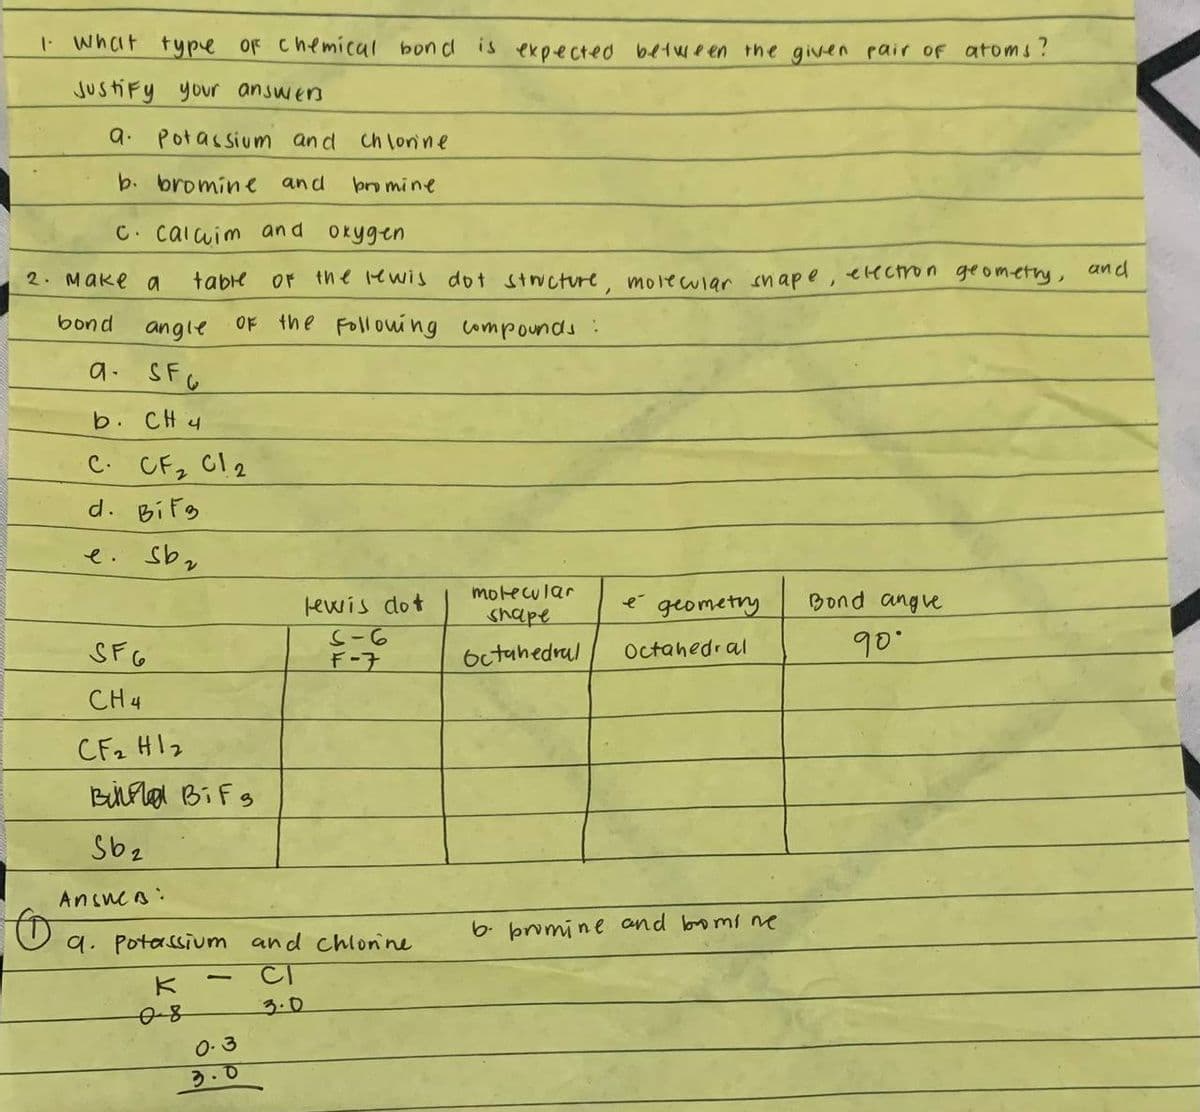 1. What type of chemical bond is expected between the given pair of atoms?
Justify your answers
a. Potassium and chlorine
b. bromine and bromine
c. calcuim and oxygen
2. Make a table of the lewis dot structure, molecular shape, electron geometry, and
bond angle of the following compounds:
a. SF6
b. CH4
c. CF2 Cl2
d. BiF3
e. Sb2
lewis dot | molecular shape | e- geometry | Bond angle
SF6 | S-6 F-7 | Octahedral | Octahedral | 90°
CH4
CF2 Hl2
BiF3
Sb2
Answers:
① a. Potassium and chlorine
b. bromine and bromine
K - Cl
0.8 3.0
0.3
3.0